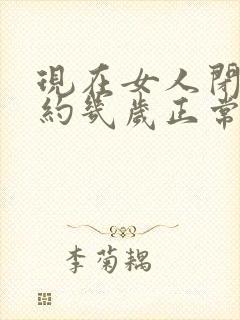 現在女人閉
約幾歲正常
李菊耦